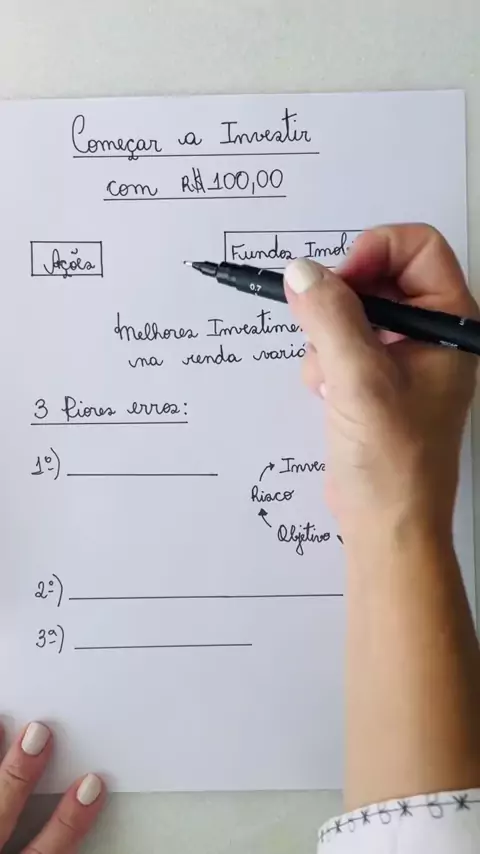 Começar a Investir
com R$100,00
Ações
Fundos Imob
Melhores Investime
na renda variá
3 Piores erros:
1º)
Inves
Risco
Objetivo
2º)
3ª)
0.7